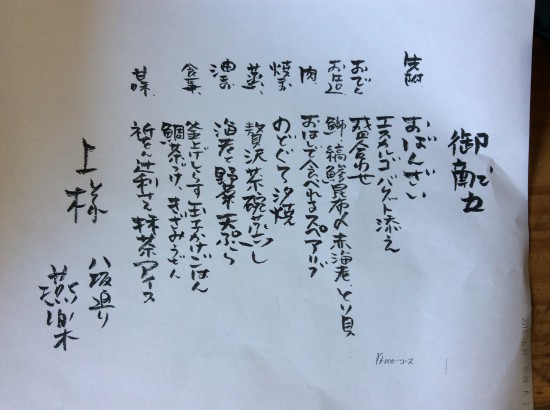 御献立
先附 おばんざい
エスカルゴ バゲット添え
おでと 盛合わせ
お造り 鰤 縞鯵昆布〆 赤海老 とり貝
肉 おはしで食べれるスペアリブ
焼物 のどぐろ汐焼
蒸し 贅沢茶碗蒸し
油物 海老と野菜 天ぷら
食事 釜上げしらす 玉子かけごはん
鯛茶づけ きざみうどん
甘味 祇をん辻利さんの 抹茶アイス
上様
八坂通り
燕楽
コース